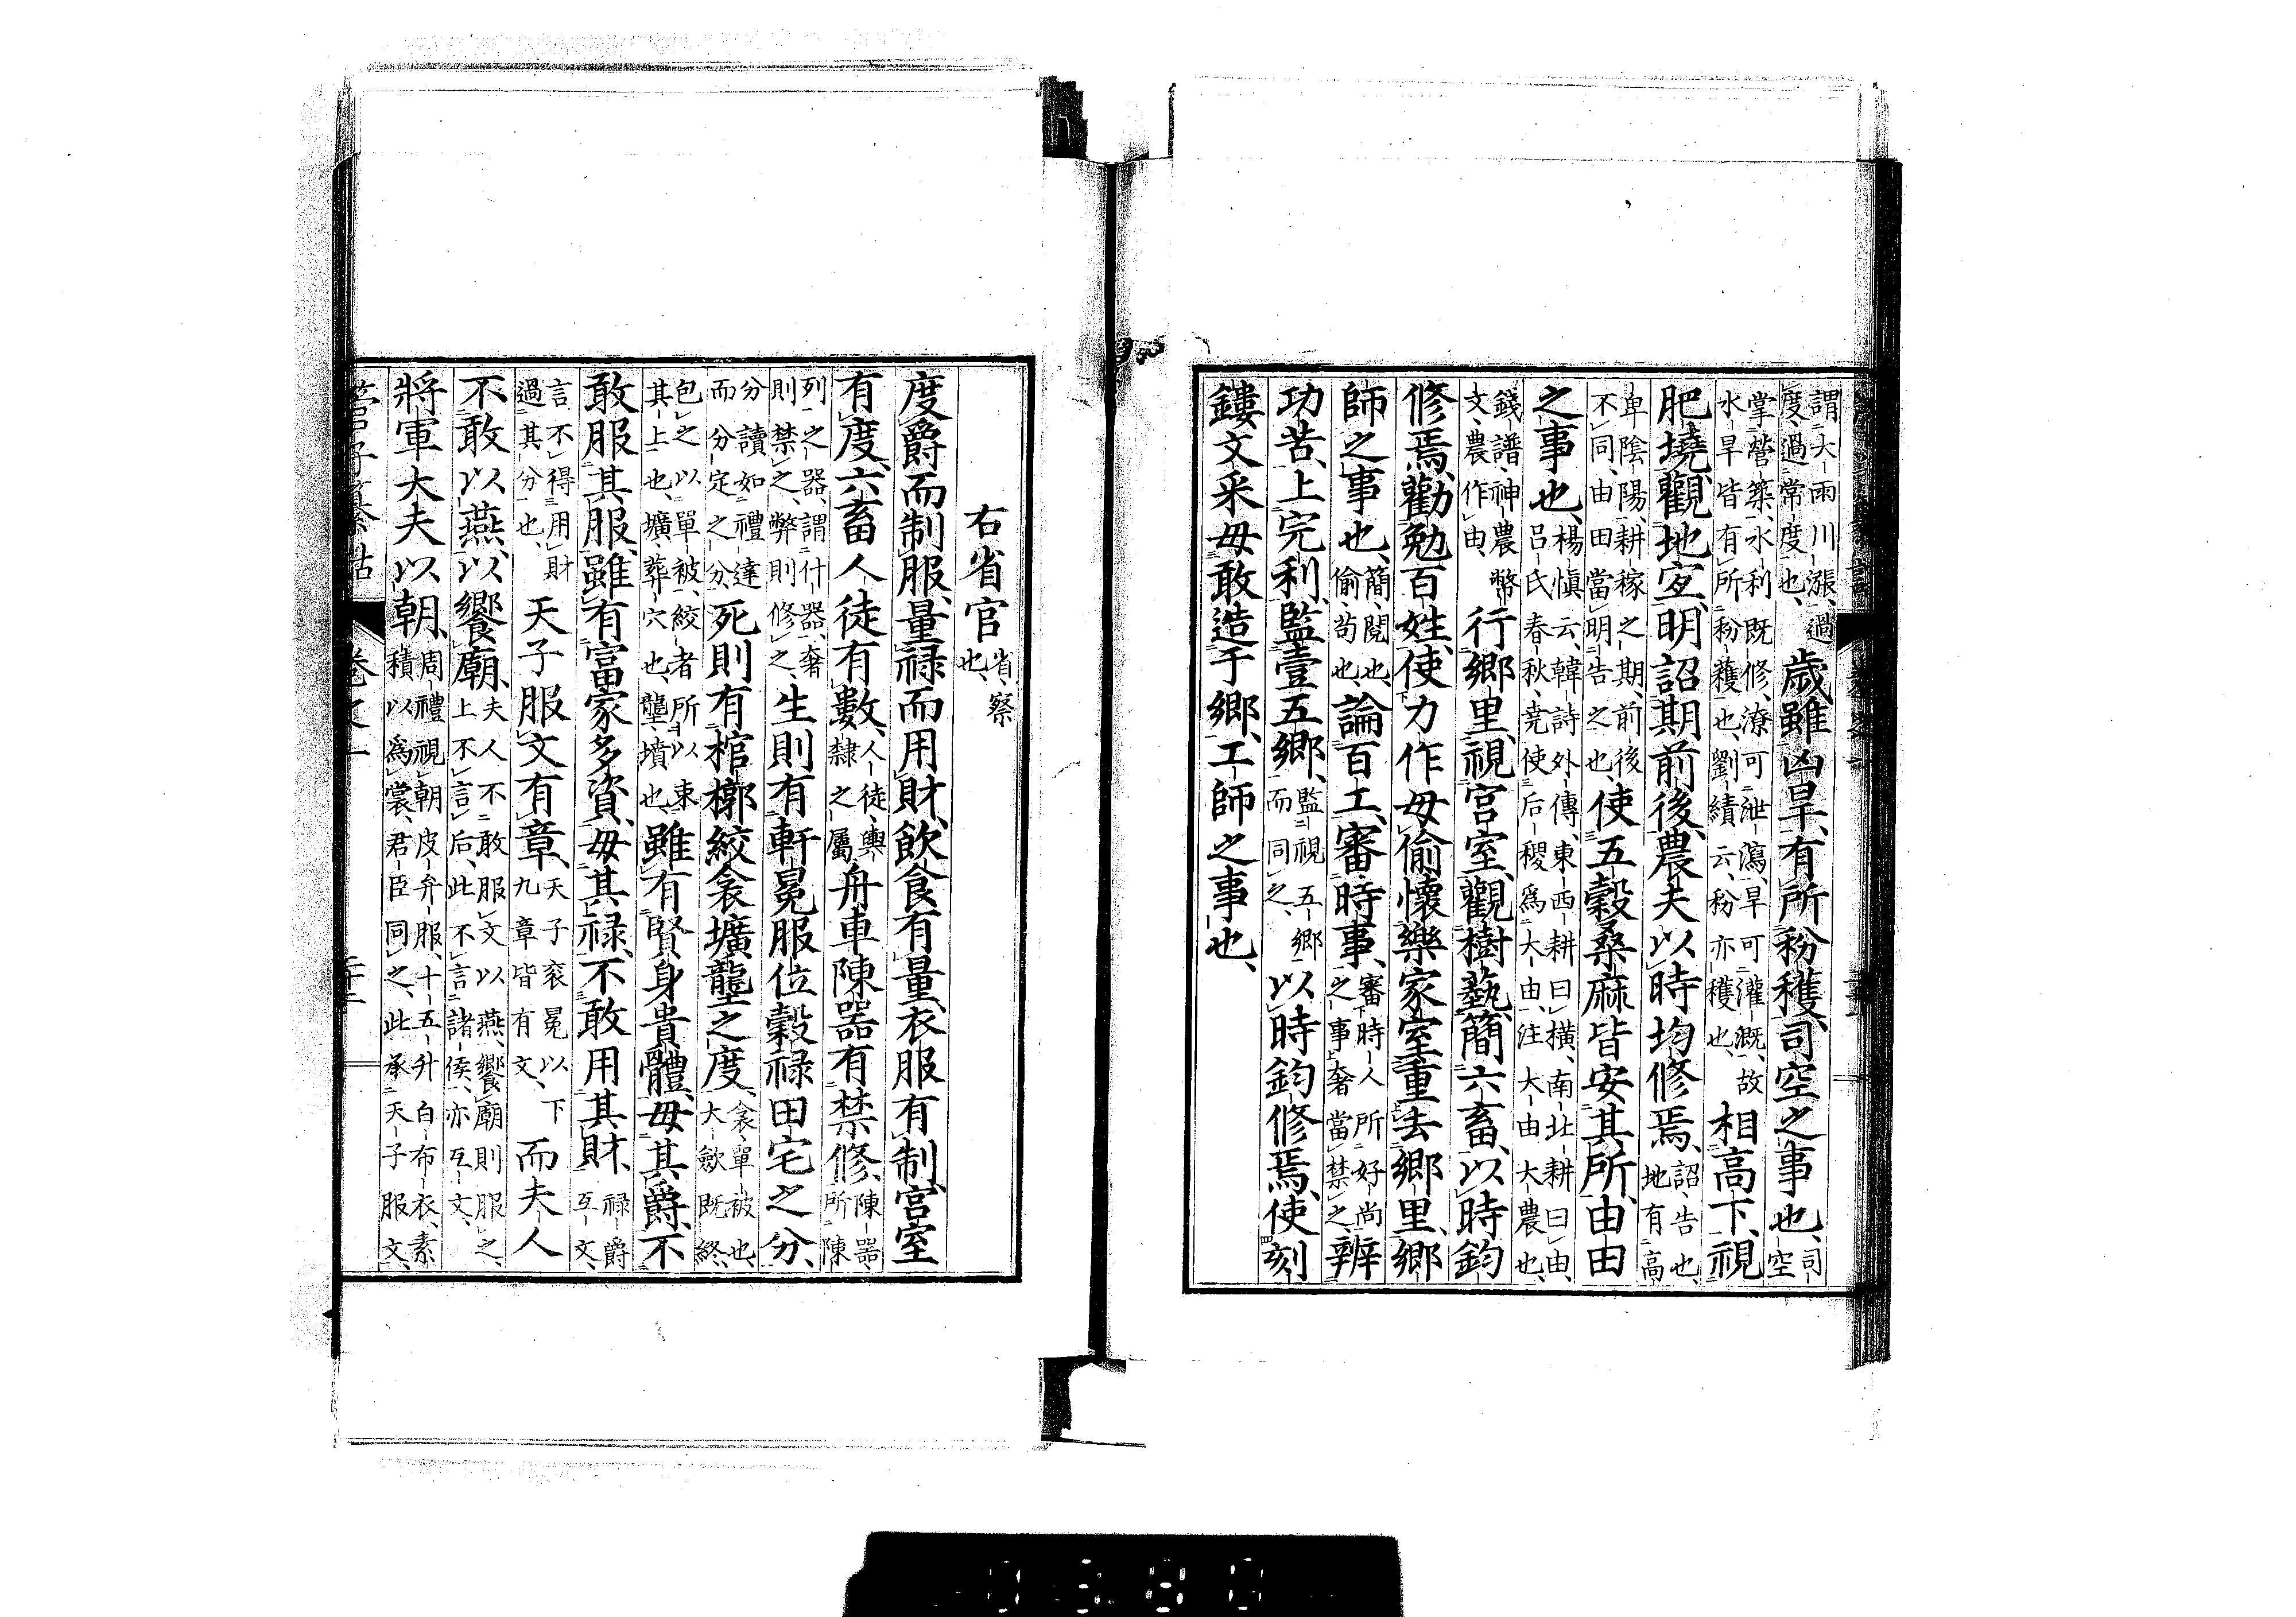 謂大雨川漲過度過常度也歲雖凶旱有所粉穫司空之事也司空
掌營築水利既修潦可泄瀉旱可灌溉故水旱皆有所粉穫也劉績云粉亦穫也相高下視
肥墝觀地宜明詔期前後農夫以時均修焉詔告也地有高
卑陰陽耕稼之期前後不同由田當明告之也使五穀桑麻皆安其所由田
之事也楊愼云韓詩外傳東西耕曰橫南北耕曰由呂氏春秋堯使后稷爲大由注大由大農也
錢譜神農幣文農作由行鄉里視宮室觀樹藝簡六畜以時鈞
修焉勸勉百姓使力作毋偷懷樂家室重去鄉里鄉
師之事也簡閱也偷苟也論百工審時事審時人所好尚之事奢當禁之辨
功苦上完利監壹五鄉監視五鄉而同之以時鈞修焉使刻
鏤文采毋敢造于鄉工師之事也
右省官省察也
度爵而制服量祿而用財飲食有量衣服有制宮室
有度六畜人徒有數人徒輿隸之屬舟車陳器有禁修陳器所陳
列之器謂什器奢則禁之弊則修之生則有軒冕服位穀祿田宅之分
分讀如禮達而分定之分死則有棺槨絞衾壙壟之度衾單被也大歛既終
包之以單被絞者所以束其上也壙葬穴也壟墳也雖有賢身貴體毋其爵不
敢服其服雖有富家多資毋其祿不敢用其財祿爵互文
言不得用財過其分也天子服文有章天子袞冕以下九章皆有文而夫人
不敢以燕以饗廟夫人不敢服文以燕饗廟則服之上不言后此不言諸侯亦互文
將軍大夫以朝周禮視朝皮弁服十五升白布衣素積以爲裳君臣同之此承天子服文
管子纂詁 卷之一 二十二